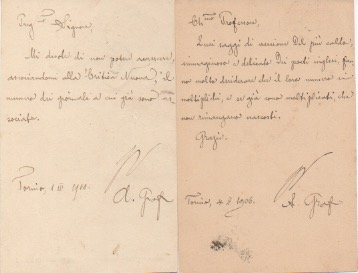 Preg. Signore
Mi duole di non poter accrescere,
associandomi alla "Critica Nuova", il
numero dei giornali a cui già sono as-
sociato.
Torino, 1 1901.
A. Graf
Professore,
saggi di versione del più caldo,
e delicato dei poeti inglesi, fan-
no molto desiderare che il loro numero si
moltiplichi, e se già sono moltiplicati, che
non rimangano nascosti.
Grazie.
Torino, 4 2 1906.
A. Graf